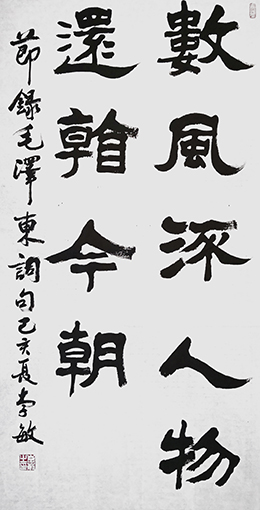 數風流人物
還看今朝
節錄毛澤東詞句己亥夏李敏